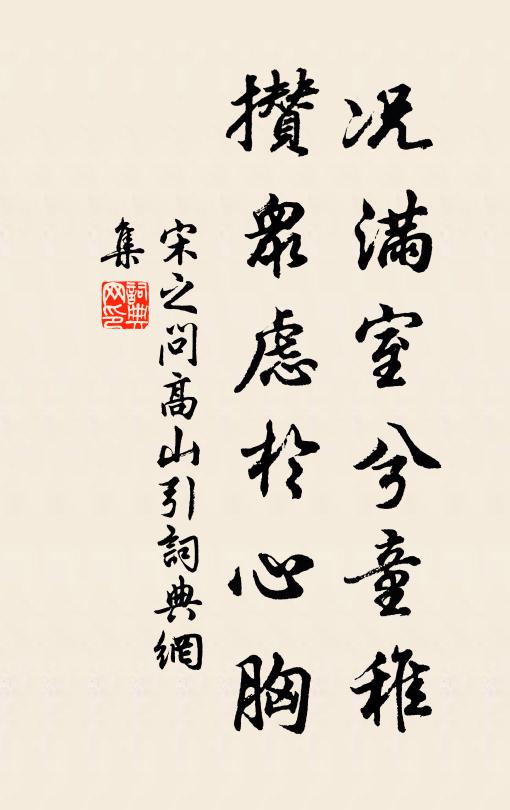 况滿室兮童稚
攢眾慮於心胸
宋之问高山引詞典網
集
詞典
网印